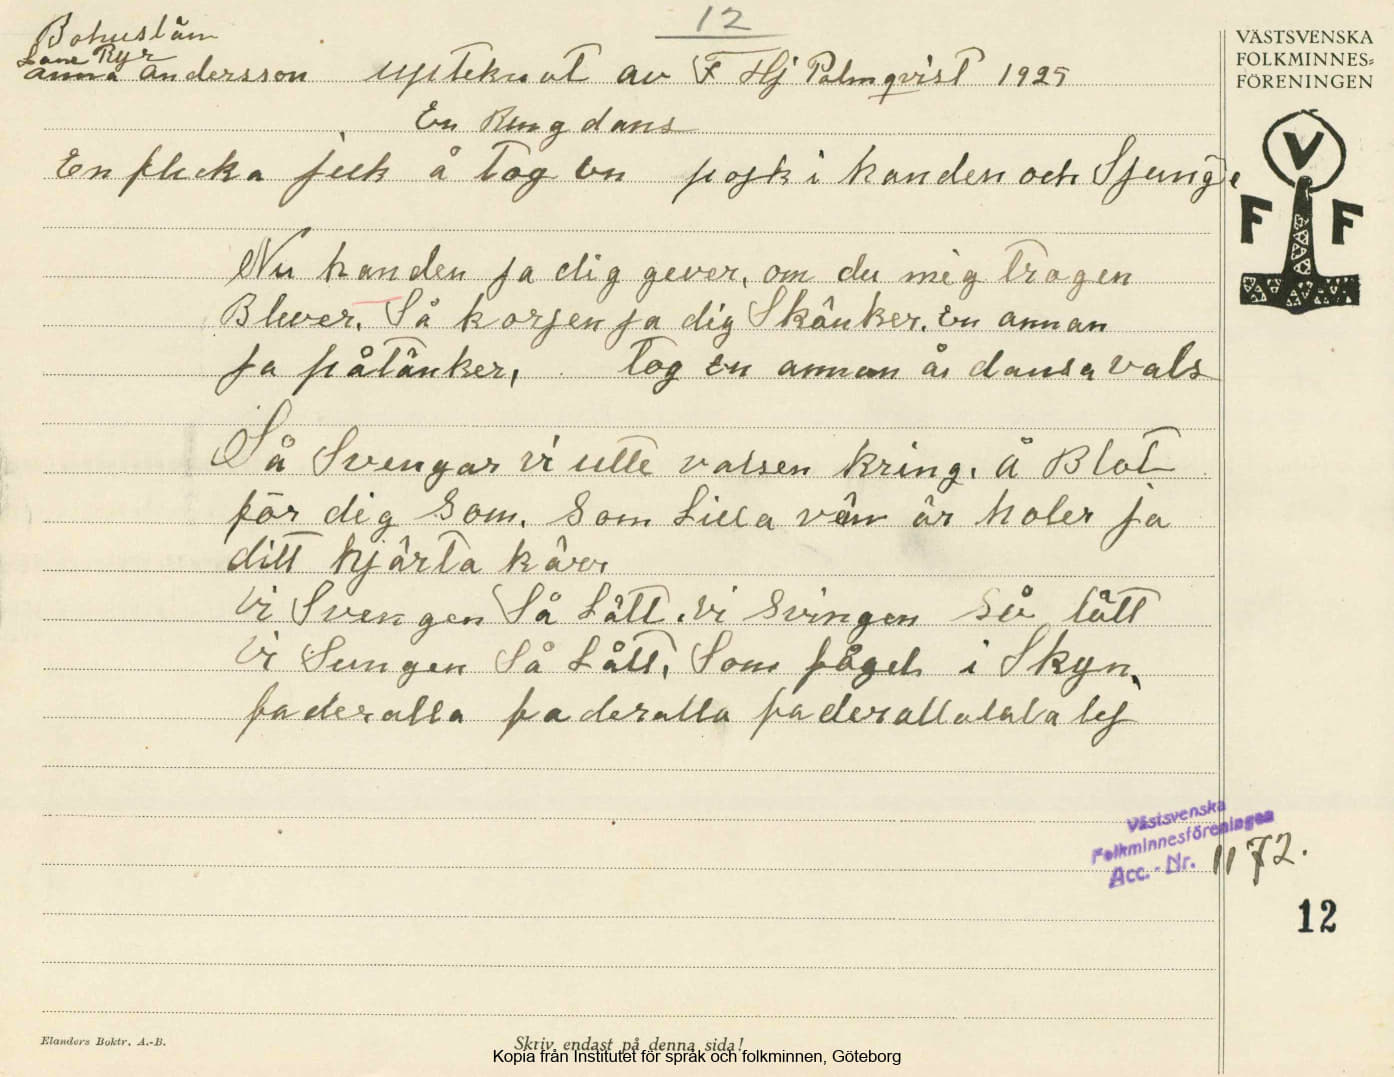 12
Bohuslän
Lane Ryr
Anna Andersson upteknat av F Hj Palmqvist 1925
En Ringdans
En flicka jick å tog en pojk i handen och Sjunge
Nu handen ja dig gever, om du mig trogen
Blever. Så korjen ja dig Skänker. En annan
ja påtänker, tog en annan å dansa vals
Så Svengar vi utte valsen kring. Å Blot
för dig som. Som Lilla vän är holer ja
ditt hjärta kär
Vi Svengen Så Lätt. Vi Svingen Så lätt
Vi Sungen Så Lått, Som fågeln i Skyn,
faderalla faderalla faderallalala lej
VÄSTSVENSKA
FOLKMINNES=
FÖRENINGEN
V
F F
Västsvenska
Folkminnesföreningen
Acc.-Nr. 1172.
12
Elanders Boktr. A.-B.
Skriv endast på denna sida!
Kopia från Institutet för språk och folkminnen, Göteborg